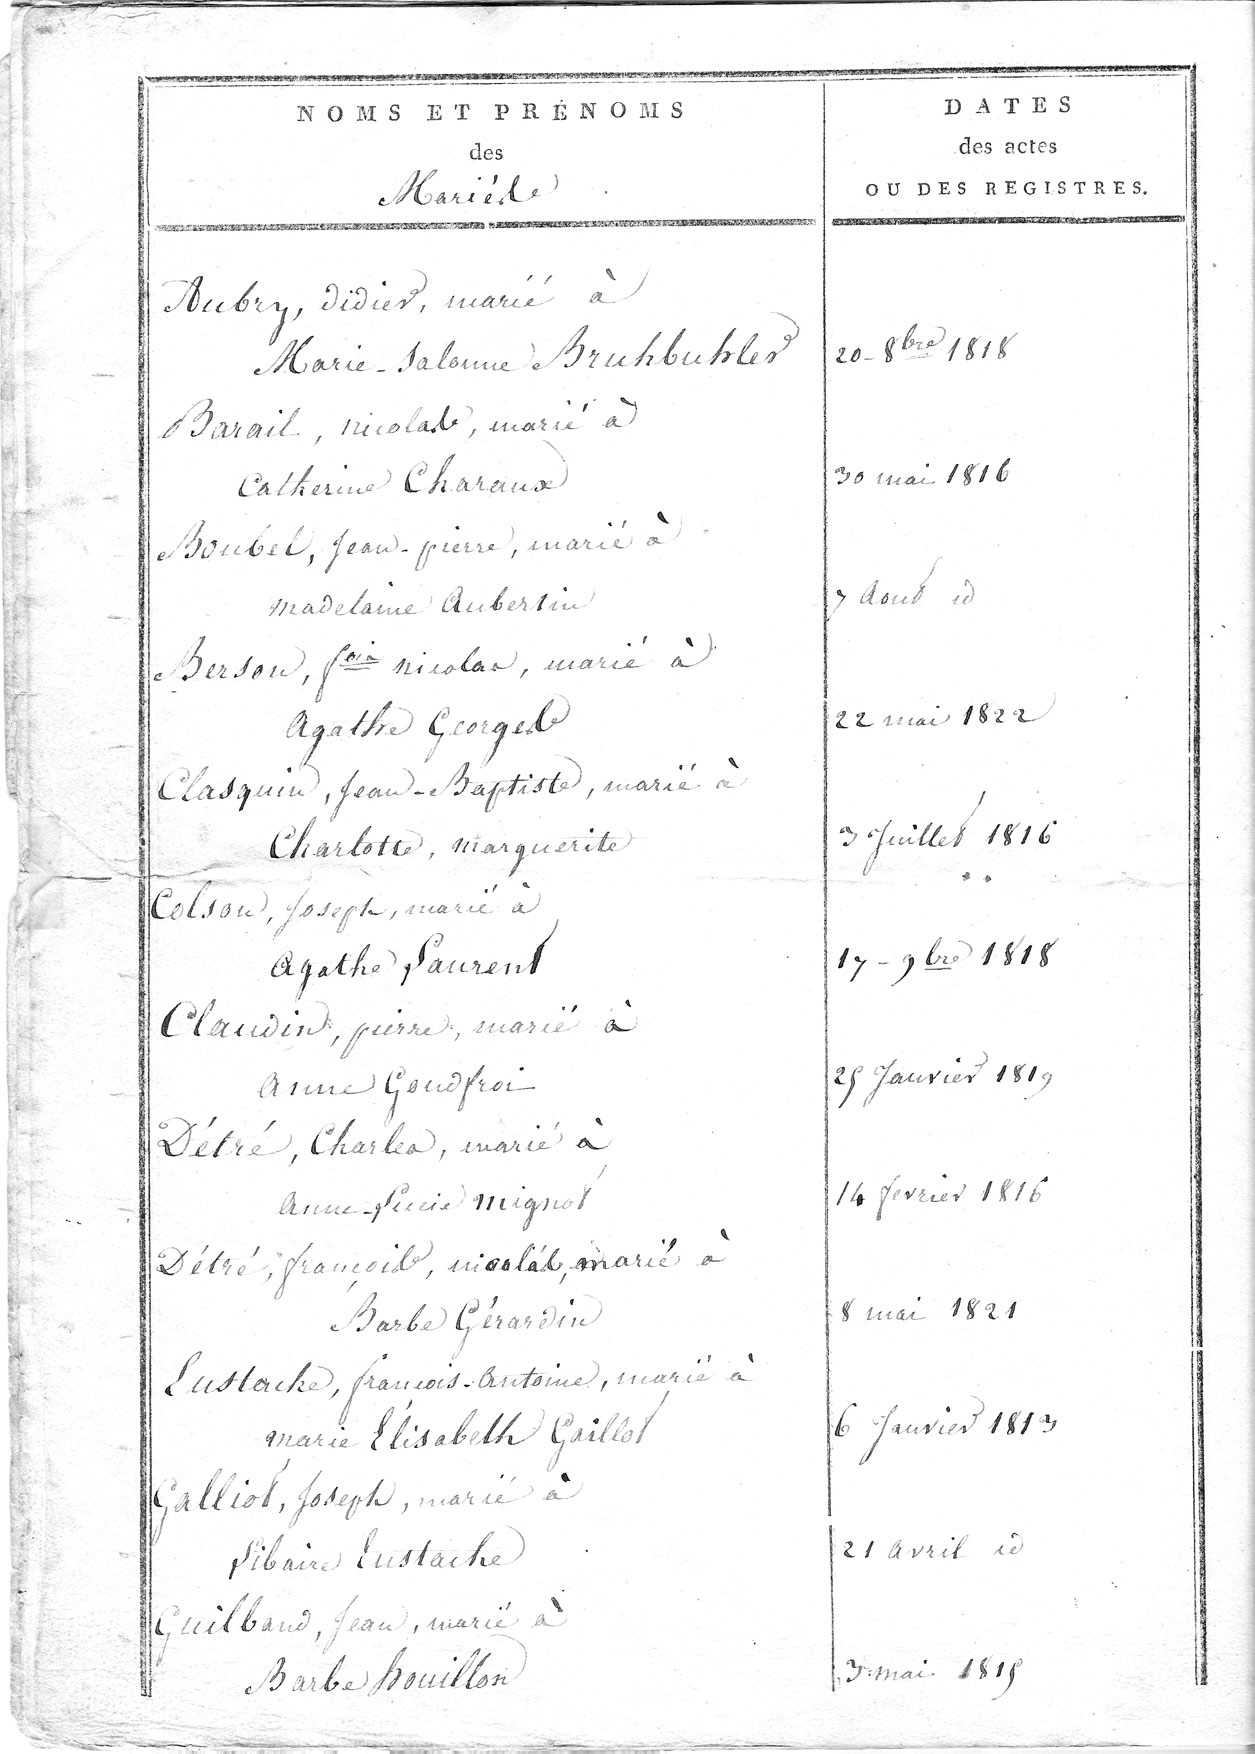 NOMS ET PRÉNOMS
des
Mariés
DATES
des actes
OU DES REGISTRES.
Aubry, didier, marié à
Marie-Salomé Bruhbuhler 20-8bre 1818
Barail, nicolas, marié à
Catherine Charaux 30 mai 1816
Boubel, Jean-pierre, marié à
madelaine Aubertin 7 Aout id
Berson, fois nicolas, marié à
Agathe Georges 22 mai 1822
Clasquin, Jean-Baptiste, marié à
Charlotte, marguerite 3 Juillet 1816
Colson, Joseph, marié à
Agathe Laurent 17-9bre 1818
Claudin, pierre, marié à
Anne Goudfroi 25 Janvier 1819
Détré, Charles, marié à
Anne-Lucie mignot 14 fevrier 1816
Détré, françois, nicolas, marié à
Barbe Gérardin 8 mai 1821
Eustache, françois-Antoine, marié à
marie Élisabeth Gaillot 6 Janvier 1813
Galliot, Joseph, marié à
Libaire Eustache 21 avril id
Guilbaud, Jean, marié à
Barbe houillon 3 mai 1815